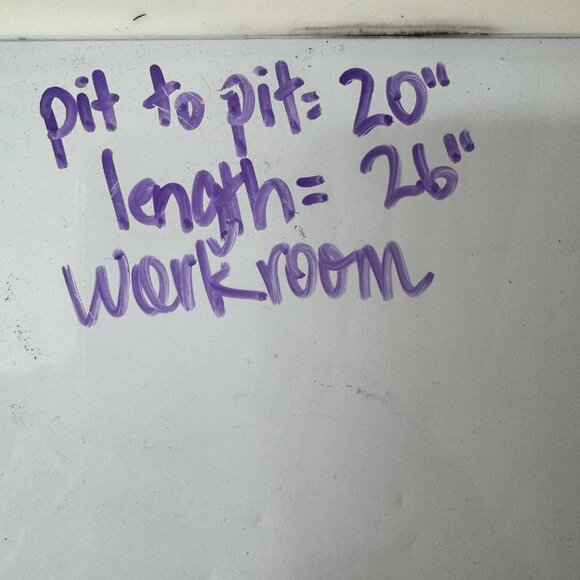 pit to pit: 20"
length= 26"
workroom